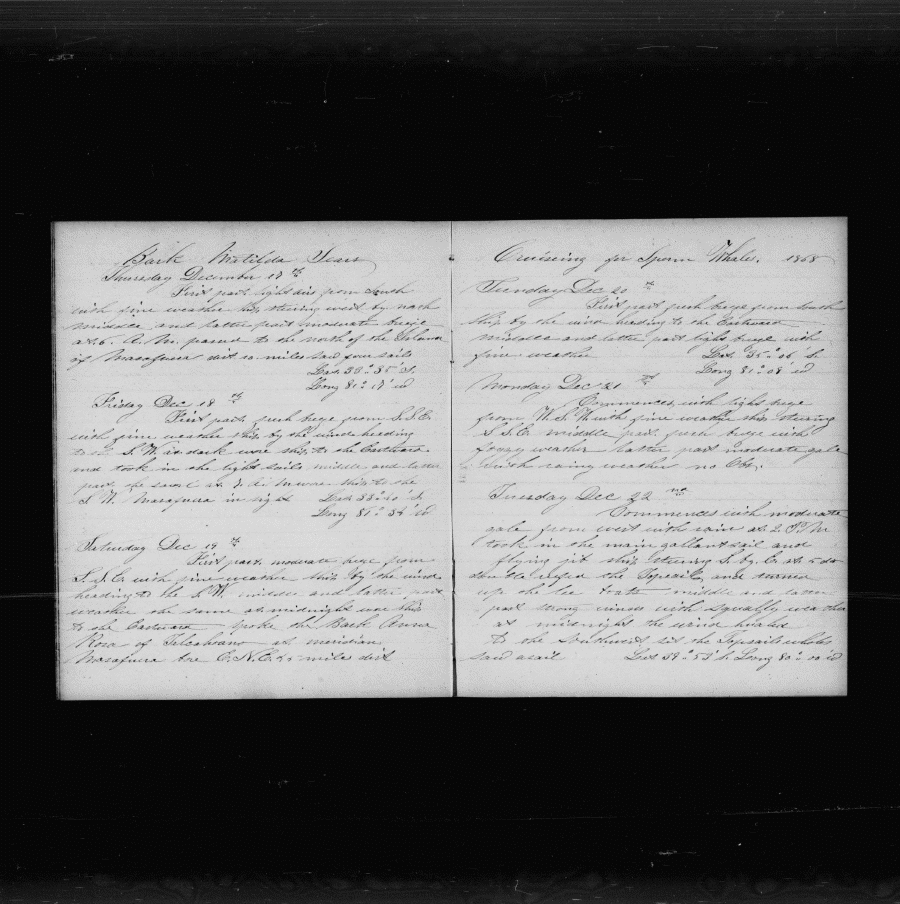 Bark Matilda Sears
Thursday December 17th
First part light airs from South
with fine weather ship steering west by north
middle and latter part moderate breeze
at 6. A. M. passed to the north of the Island
of Masafuera dist 10 miles Saw four sails
Lat. 33° 35' S.
Long 81° 17' W
Friday Dec 18th
First part fresh breeze from S.S.E.
with fine weather ship by the wind heading
to S. W. at dark wore ship to the Eastward
and took in the light sails middle and latter
part the same at A. M. wore ship to the
S. W. Masafuera in sight Lat 33° S.
Long 81° W
Saturday Dec 19th
First part moderate breeze from
S.S.E. with fine weather ship by the wind
heading to the S. W. middle and latter part
weather the same at midnight wore ship
to the Eastward Spoke the Bark Anna
Rosa of Talcahuano at meridian
Masafuera bore E.N.E. miles dist
Cruising for Sperm Whales. 1868
Sunday Dec 20th
First part fresh breeze from South
Ship by the wind heading to the Eastward
middle and latter part light breeze with
fine weather Lat. 35° 06' S.
Long 81° 08' W
Monday Dec 21st
Commences with light breeze
from W.S.W. with fine weather ship steering
S.S.E. middle part fresh breeze with
foggy weather latter part moderate gale
with rainy weather no Obs.
Tuesday Dec 22nd
Commences with moderate
gale from west with rain at 2. P. M
took in the main gallantsail and
flying jib ship steering S. by E. at 5
double reefed the Topsails and turned
up the lee boats middle and latter
part strong winds with squally weather
at midnight the wind hauled
to the Southwest the Topsails whole
Saw a sail Lat 39° 53' S. Long 80° 00' W